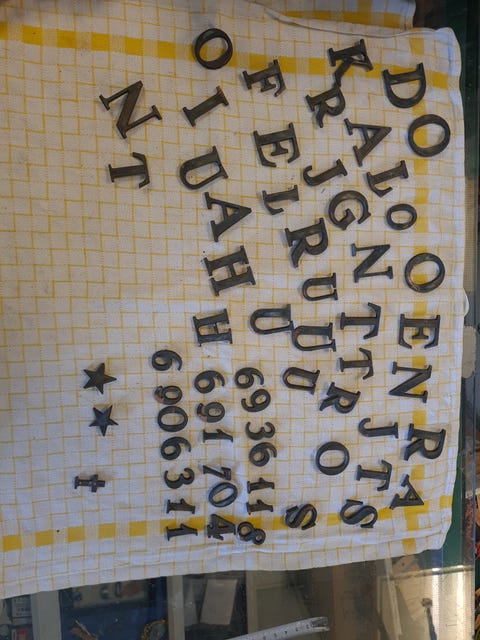 D O O E N R A
K R A L O J G N T T R J T S
F E L R U U U U O S
O I U A H H 6 9 3 6 1 1 8
N T 6 9 1 7 0 4
6 9 0 6 3 1 1